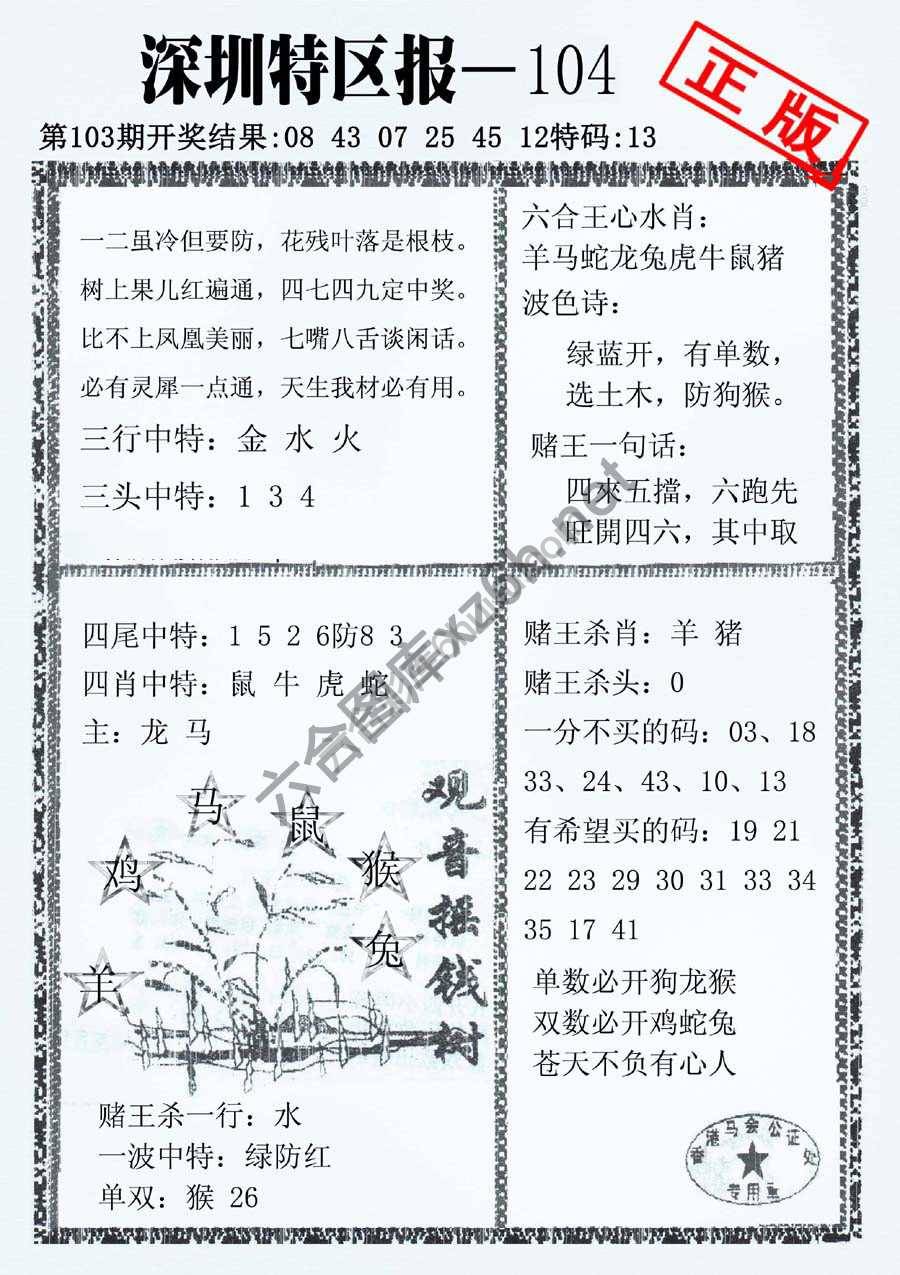 深圳特区报—104
正版
第103期开奖结果:08 43 07 25 45 12特码:13
一二虽冷但要防，花残叶落是根枝。
树上果儿红遍通，四七四九定中奖。
比不上凤凰美丽，七嘴八舌谈闲话。
必有灵犀一点通，天生我材必有用。
三行中特：金 水 火
三头中特：1 3 4
六合王心水肖：
羊马蛇龙兔虎牛鼠猪
波色诗：
绿蓝开，有单数，
选土木，防狗猴。
赌王一句话：
四來五擋，六跑先
旺開四六，其中取
四尾中特：1 5 2 6防8 3
四肖中特：鼠 牛 虎 蛇
主：龙 马
马
鼠
鸡
猴
兔
羊
观音摇钱树
赌王杀一行：水
一波中特：绿防红
单双：猴 26
赌王杀肖：羊 猪
赌王杀头：0
一分不买的码：03、18
33、24、43、10、13
有希望买的码：19 21
22 23 29 30 31 33 34
35 17 41
单数必开狗龙猴
双数必开鸡蛇兔
苍天不负有心人
香港马会公证处
专用章